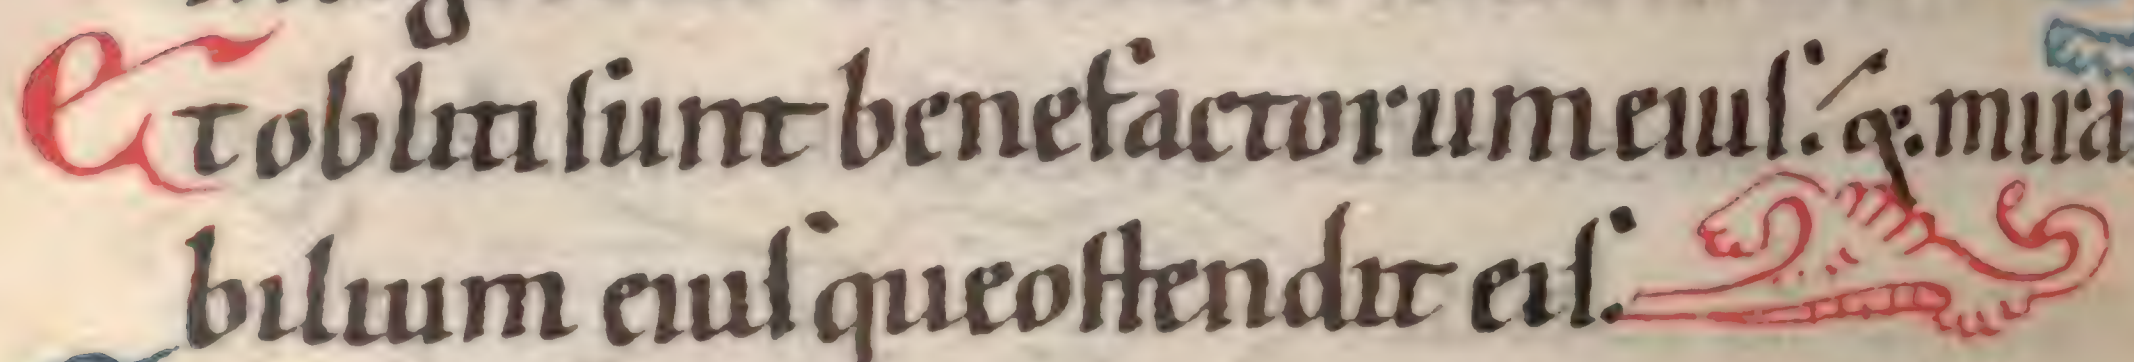 Et obliti sunt benefactorum eius. q; mira
bilium eius que ostendit eis.